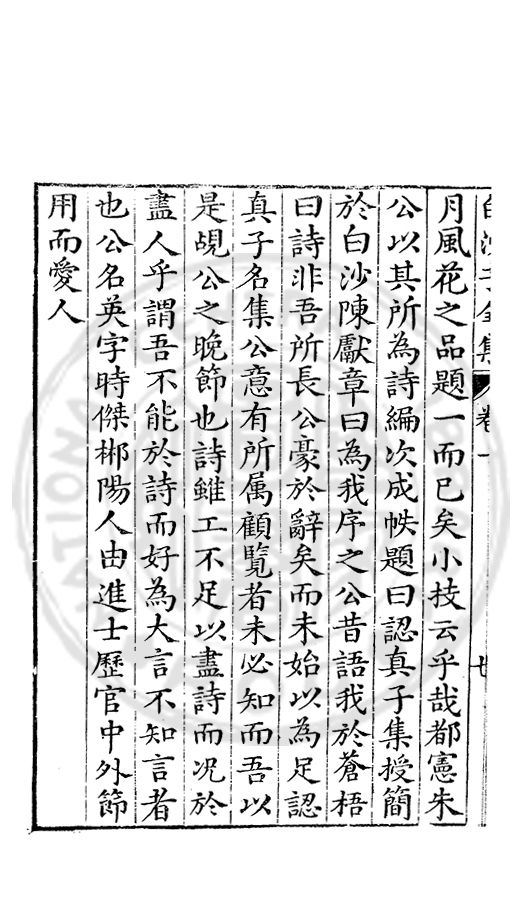 白沙子全集 卷一
月風花之品題一而已矣小技云乎哉都憲朱
公以其所為詩編次成帙題曰認真子集授簡
於白沙陳獻章曰為我序之公昔語我於蒼梧
曰詩非吾所長公豪於辭矣而未始以為足認
真子名集公意有所属顧覽者未必知而吾以
是覘公之晚節也詩雖工不足以盡詩而况於
盡人乎謂吾不能於詩而好為大言不知言者
也公名英字時傑郴陽人由進士歷官中外節
用而愛人
NATIONAL